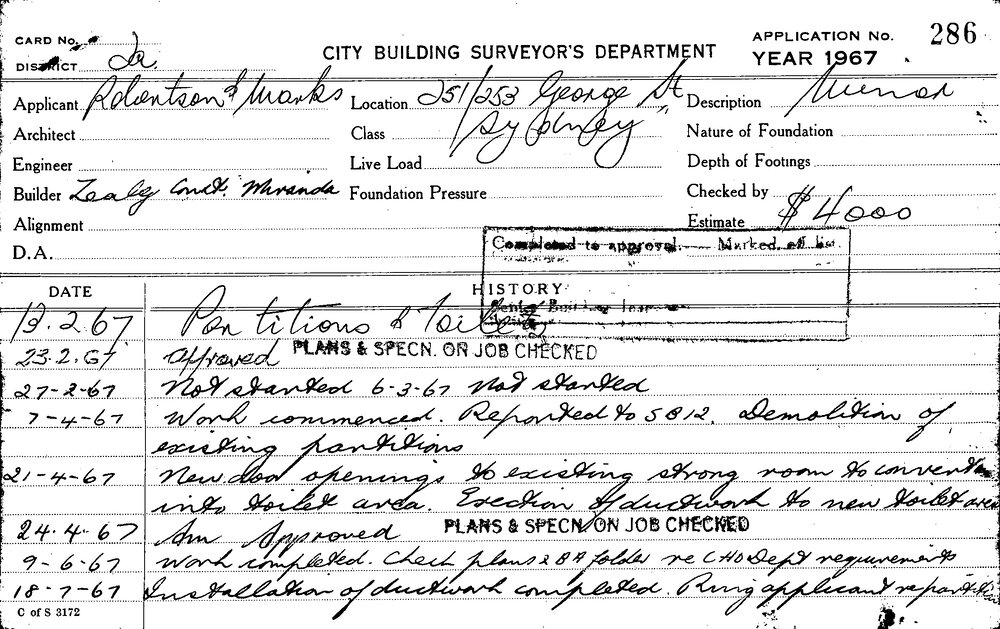 CARD No.
APPLICATION No. 286
DISTRICT
CITY BUILDING SURVEYOR'S DEPARTMENT
YEAR 1967
Applicant Robertson & Marks Location 251/253 George St Description Minor
Architect Class Sydney Nature of Foundation
Engineer Live Load Depth of Footings
Builder Zealy Const. Miranda Foundation Pressure Checked by
Alignment Estimate $4000
D.A.
Completed to approval. Marked off
DATE HISTORY
13.2.67 Partitions & Toilets
23.2.67 Approved PLANS & SPECN. ON JOB CHECKED
27-2-67 Not started 6-3-67 Not started
7-4-67 Work commenced. Reported to S012. Demolition of
existing partitions
21-4-67 New door openings to existing strong room to convert
into toilet area. Erection of ductwork to new toilet area
24.4.67 Am Approved PLANS & SPECN/ON JOB CHECKED
9-6-67 Work completed. Check plans & BA folder re CHO Dept requirements
18-7-67 Installation of ductwork completed. Ring applicant re
C of S 3172